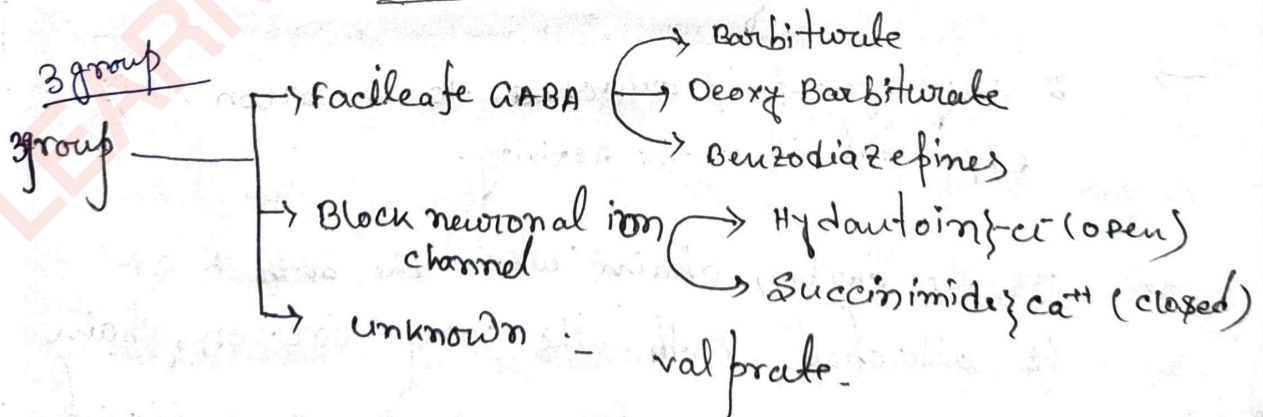 LEARN
3 group
3group
→ Facileate GABA
→ Barbiturate
→ Deoxy Barbiturate
→ Benzodiazepines
→ Block neuronal ion channel
→ Hydantoin}-cl⁻ (open)
→ Succinimide} ca⁺⁺ (closed)
→ unknown :- valprate.